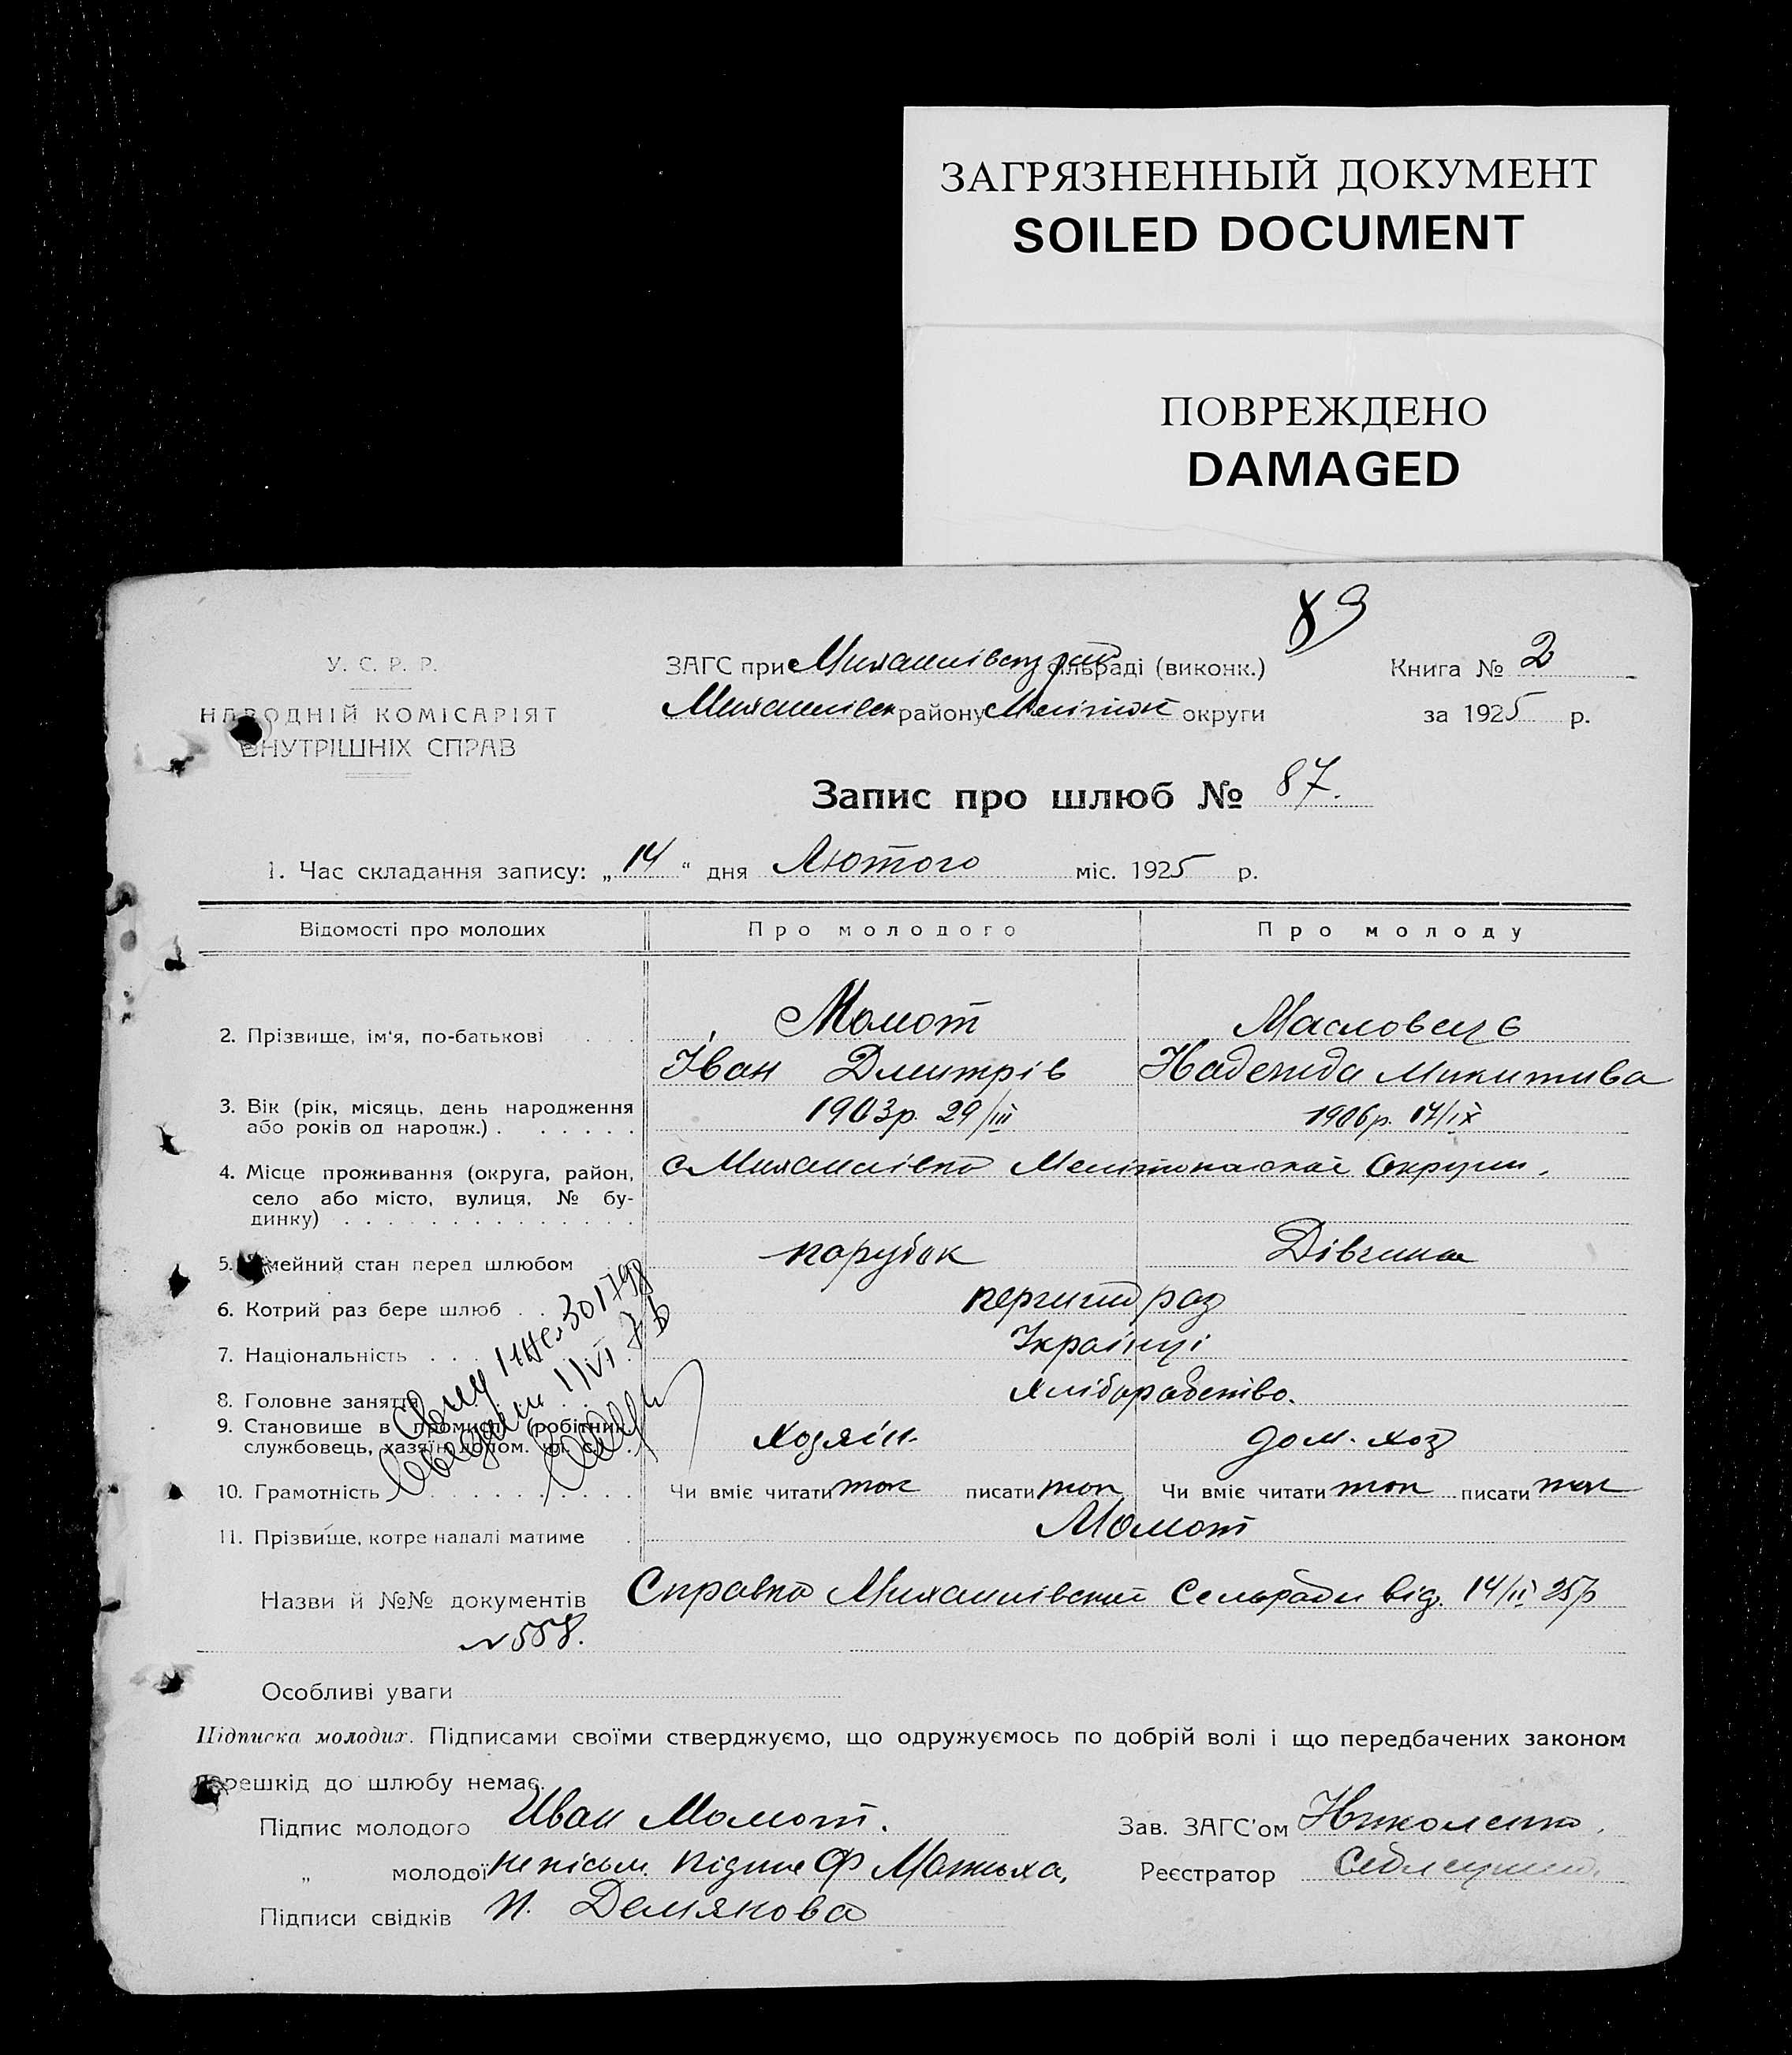 ЗАГРЯЗНЕННЫЙ ДОКУМЕНТ
SOILED DOCUMENT
ПОВРЕЖДЕНО
DAMAGED
89
У. С. Р. Р.
НАРОДНІЙ КОМІСАРІЯТ
ВНУТРІШНІХ СПРАВ
ЗАГС при сільраді (виконк.)
району Мелітоп округи
Книга № 2
за 1925 р.
Запис про шлюб № 87.
1. Час складання запису: „14“ дня Лютого міс. 1925 р.
Відомості про молодих Про молодого Про молоду
2. Прізвище, ім'я, по-батькові . . . Момот
Іван Дмитрів Надежда Микитива
3. Вік (рік, місяць, день народження
або років од народж.) . . . . . . 1903р. 29/III 1906р. 17/IX
4. Місце проживання (округа, район,
село або місто, вулиця, № бу-
динку) . . . . . . . . . . . . . . с Михайлівка Мелітопольської Округи.
5. Сімейний стан перед шлюбом парубок Дівчина
6. Котрий раз бере шлюб . . перший раз
7. Національність . . . Українці
8. Головне заняття Хліборобство.
9. Становище в промислі (робітник,
службовець, хазяїн, допом. чл. с.) Хозяїн. дом. хоз
10. Грамотність . . . . . . . . . Чи вміє читати так писати так Чи вміє читати так писати так
11. Прізвище, котре надалі матиме . Момот
Назви й №№ документів Справка Михайлівской Сельради від. 14/II 25р
№558.
Особливі уваги
Підписка молодих. Підписами своїми стверджуємо, що одружуємось по добрій волі і що передбачених законом
перешкід до шлюбу немає.
Підпис молодого Иван Момот.
„ молодої непісьм. підпис Ф
Підписи свідків И. Демянова
Зав. ЗАГС'ом Николенко
Реєстратор